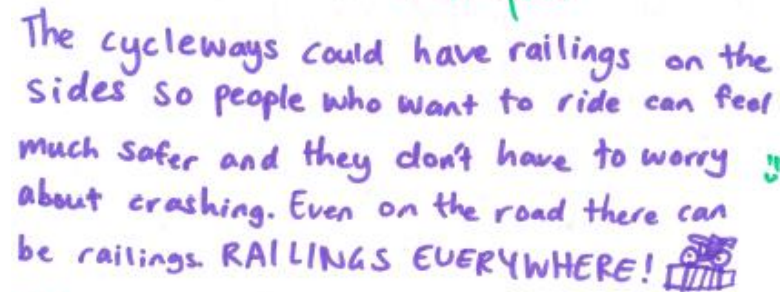 The cycleways could have railings on the
sides so people who want to ride can feel
much safer and they don't have to worry
about crashing. Even on the road there can
be railings. RAILINGS EVERYWHERE!